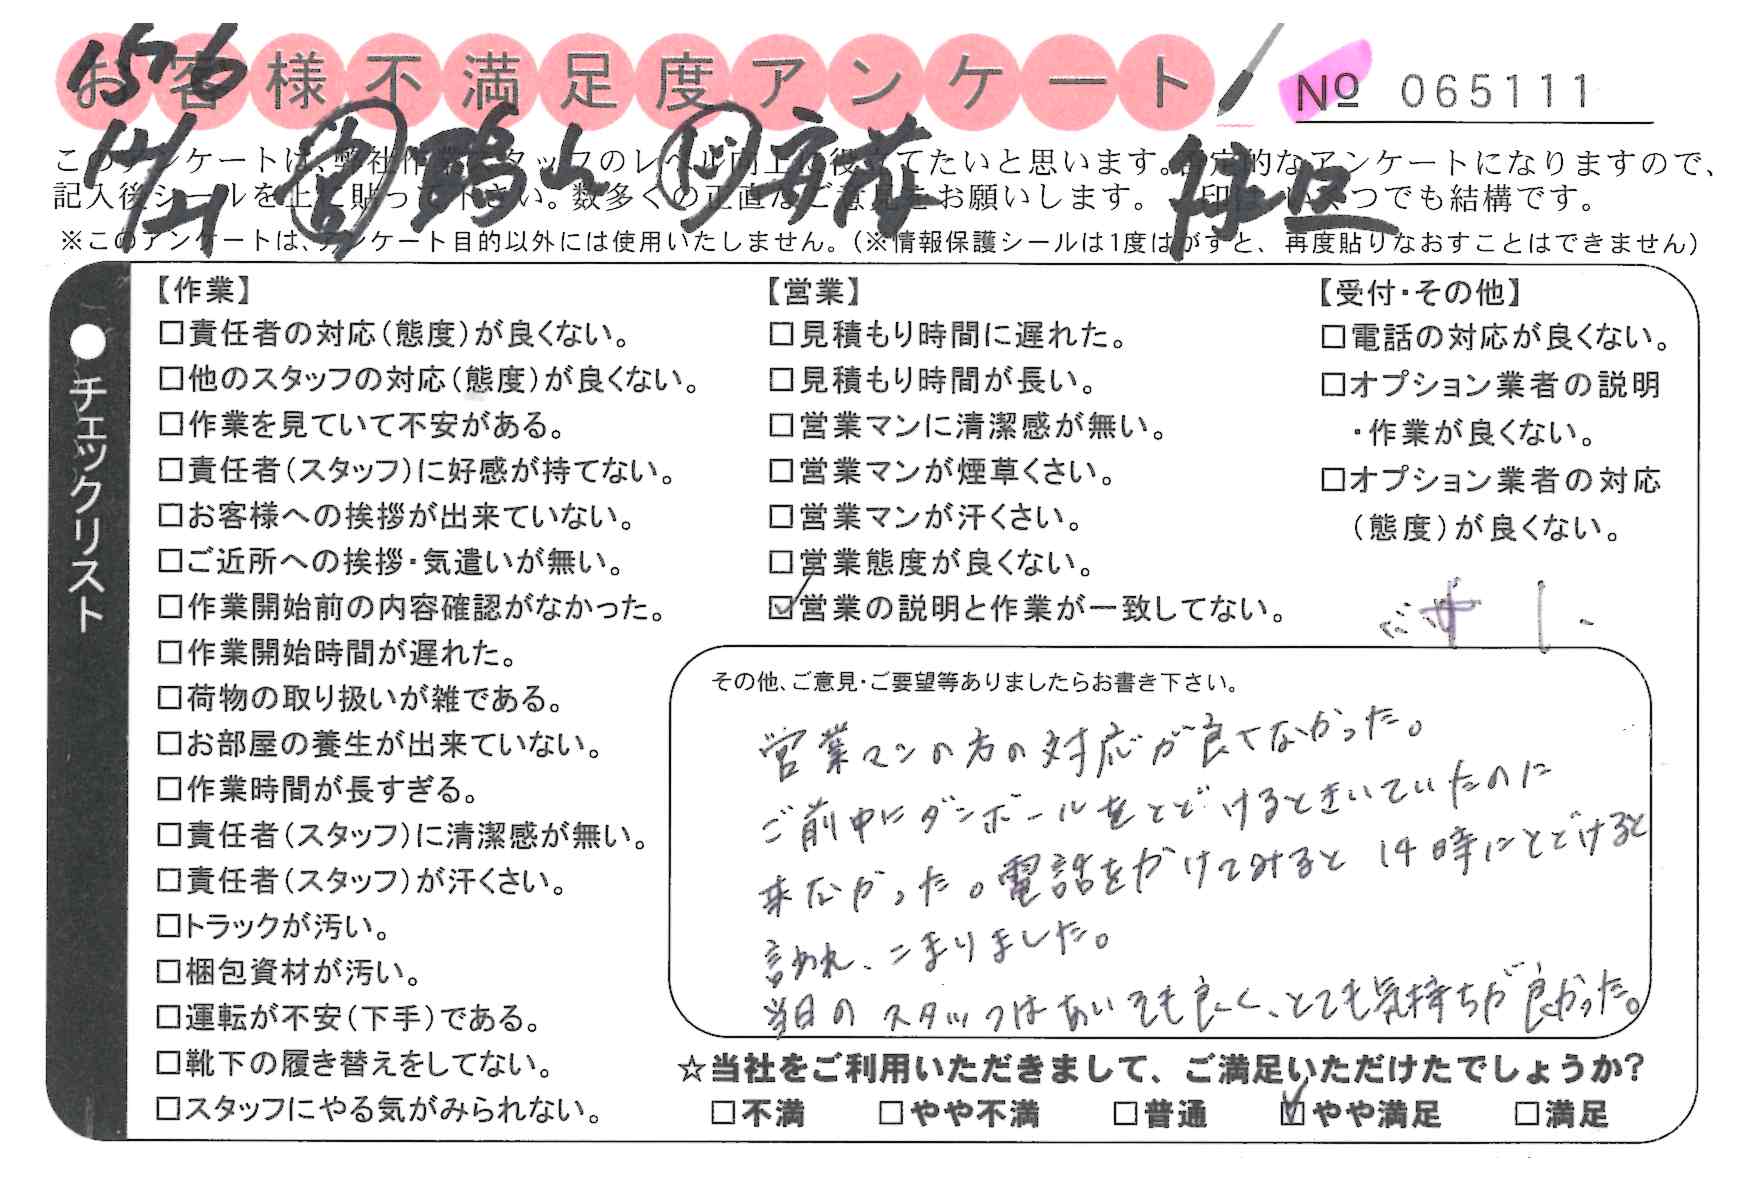 お客様不満足度アンケート
№ 065111
このアンケートは、弊社作業スタッフのレベル向上に役立てたいと思います。否定的なアンケートになりますので、
記入後シールを上に貼って下さい。数多くの正直なご意見をお願いします。✓印はいくつでも結構です。
※このアンケートは、アンケート目的以外には使用いたしません。(※情報保護シールは1度はがすと、再度貼りなおすことはできません)
●チェックリスト
【作業】
□責任者の対応(態度)が良くない。
□他のスタッフの対応(態度)が良くない。
□作業を見ていて不安がある。
□責任者(スタッフ)に好感が持てない。
□お客様への挨拶が出来ていない。
□ご近所への挨拶・気遣いが無い。
□作業開始前の内容確認がなかった。
□作業開始時間が遅れた。
□荷物の取り扱いが雑である。
□お部屋の養生が出来ていない。
□作業時間が長すぎる。
□責任者(スタッフ)に清潔感が無い。
□責任者(スタッフ)が汗くさい。
□トラックが汚い。
□梱包資材が汚い。
□運転が不安(下手)である。
□靴下の履き替えをしてない。
□スタッフにやる気がみられない。
【営業】
□見積もり時間に遅れた。
□見積もり時間が長い。
□営業マンに清潔感が無い。
□営業マンが煙草くさい。
□営業マンが汗くさい。
□営業態度が良くない。
☑営業の説明と作業が一致してない。
【受付・その他】
□電話の対応が良くない。
□オプション業者の説明
・作業が良くない。
□オプション業者の対応
(態度)が良くない。
その他、ご意見・ご要望等ありましたらお書き下さい。
営業マンの方の対応が良くなかった。
ご前中にダンボールをとどけるときいていたのに
来なかった。電話をかけてみると 14時にとどけると
言われ、こまりました。
当日のスタッフはあいそも良く、とても気持ちが良かった。
☆当社をご利用いただきまして、ご満足いただけたでしょうか?
□不満 □やや不満 □普通 ☑やや満足 □満足